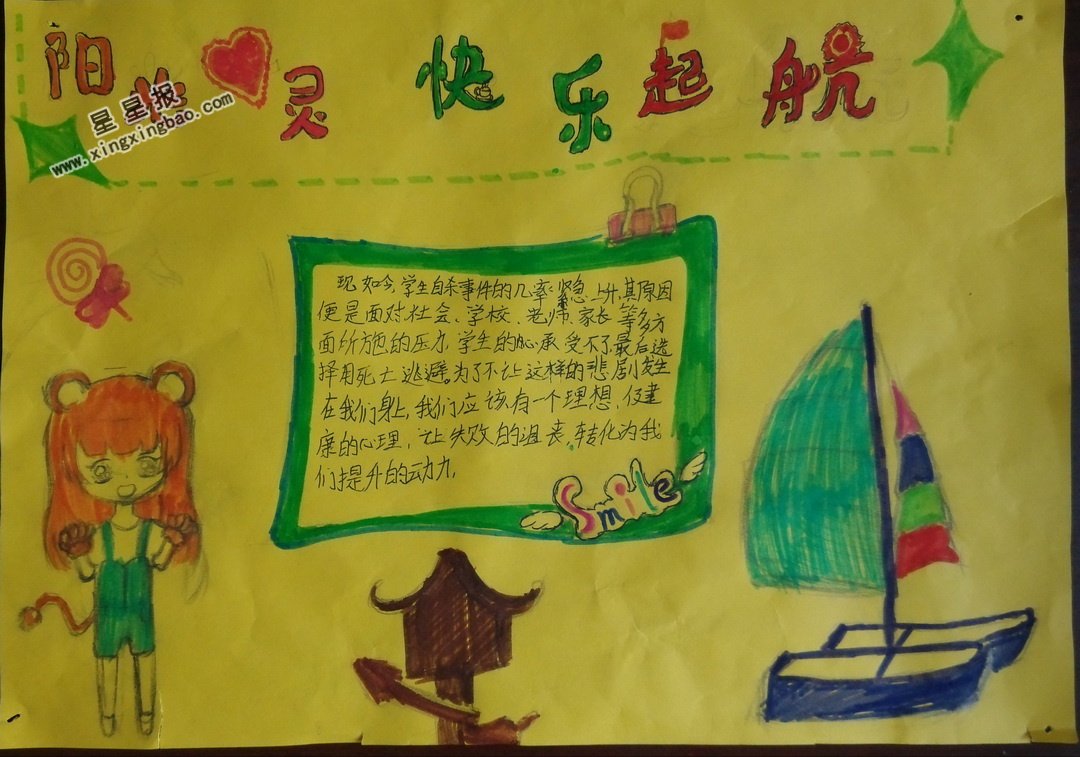 阳光 灵 快乐起航
星星报
www.xingxingbao.com
现如今,学生自杀事件的几率紧急上升,其原因
便是面对社会、学校、老师、家长等多方
面所施的压力,学生的心承受不了,最后选
择用死亡逃避。为了不让这样的悲剧发生
在我们身上,我们应该有一个理想,健
康的心理,让失败的沮丧,转化为我
们提升的动力,
Smile